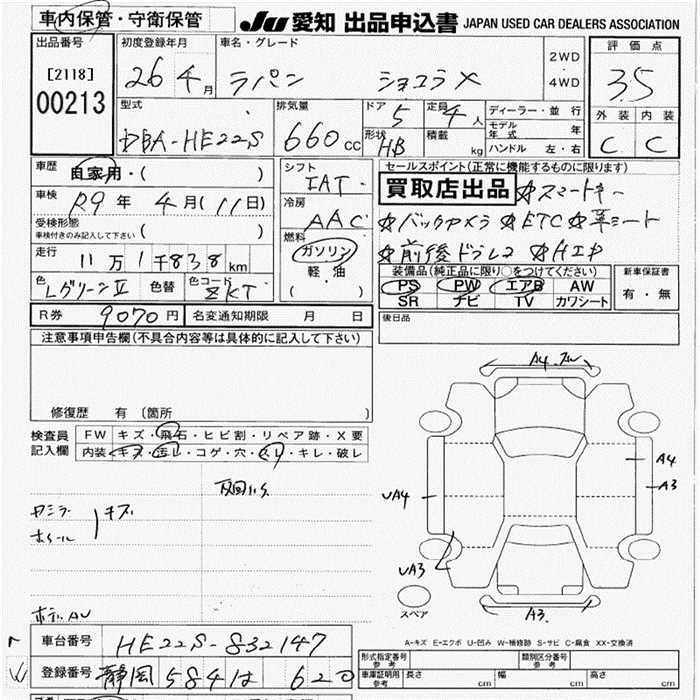 車内保管・守衛保管
JU 愛知 出品申込書 JAPAN USED CAR DEALERS ASSOCIATION
出品番号 [2118] 00213
初度登録年月 26 4月
車名・グレード ラパン ショコラX
2WD・4WD
評価点 3.5
外装 C 内装 C
型式 DBA-HE22S
排気量 660cc
ドア 5 定員 4人
形状 HB 積載 kg
ディーラー・並行
モデル年式 年
ハンドル 左・右
車歴 自家用・( )
車検 R9年 4月(11日)
受検形態 車検付きのみ記入して下さい ( )
走行 11万1千838km
色 Lグリーン II 色替 色コード ZKT
シフト IAT
冷房 AAC
燃料 ガソリン・軽油 ( )
セールスポイント(正常に機能するものに限ります)
買取店出品 ☆スマートキー
☆バックカメラ ☆ETC ☆革シート
☆前後ドラレコ ☆HID
装備品(純正品に限り○をつけてください)
PS PW エアB AW
SR ナビ TV カワシート
新車保証書 有・無
R券 9070円 名変通知期限 月 日
後日品
注意事項申告欄(不具合内容等は具体的に記入して下さい)
修復歴 有 〔箇所 〕
検査員記入欄
FW キズ・飛石・ヒビ割・リペア跡・X要
内装 キズ・汚レ・コゲ・穴・スレ・キレ・破レ
カミラ
ホイール キズ
ボディAU
A4
A4
A3
UA4
UA3
A3
スペア
A-キズ E-エクボ U-凹み W-補修跡 S-サビ C-腐食 XX-交換済
車台番号 HE22S-832147
登録番号 静岡 584 は 620
形式指定番号 参考 類別区分番号 参考
車庫証明用 参考 長さ cm 幅 cm 高さ cm